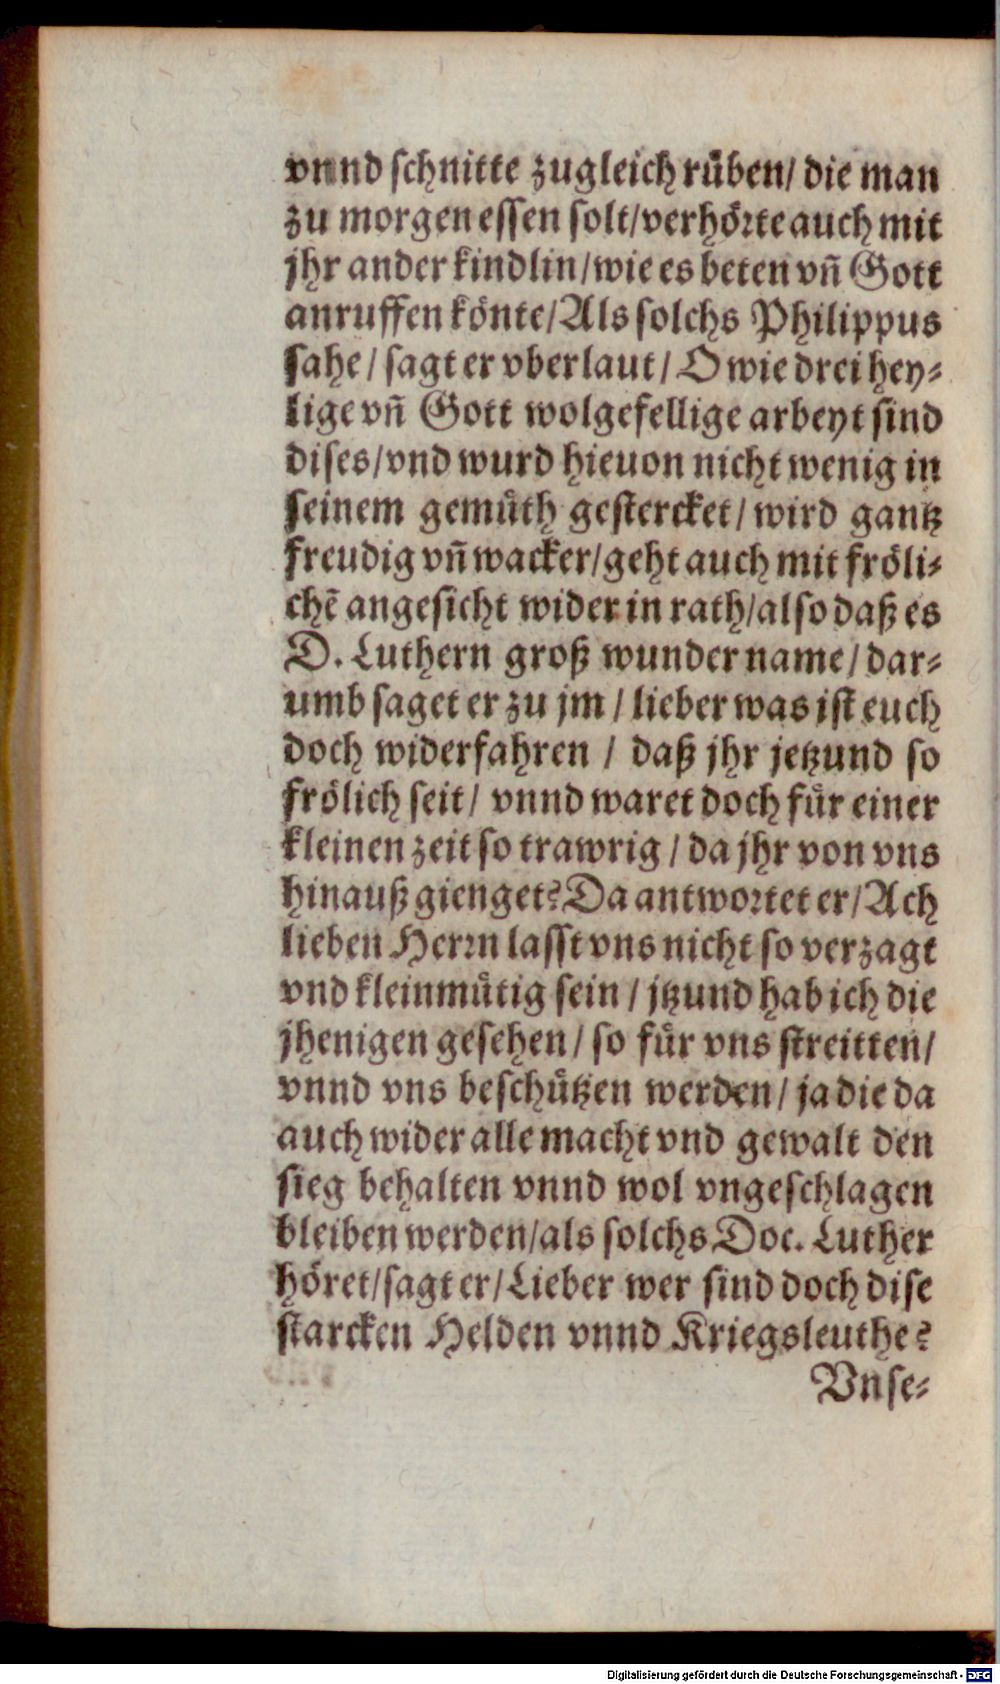 vnnd schnitte zugleich rüben/ die man
zu morgen essen solt/verhörte auch mit
jhr ander kindlin/wie es beten vñ Gott
anruffen könte/Als solchs Philippus
sahe/ sagt er vberlaut/ O wie drei hey-
lige vñ Gott wolgefellige arbeyt sind
dises/vnd wurd hieuon nicht wenig in
seinem gemüth gestercket/ wird gantz
freudig vñ wacker/geht auch mit fröli-
chẽ angesicht wider in rath/also daß es
D. Luthern groß wunder name/ dar-
umb saget er zu jm / lieber was ist euch
doch widerfahren / daß jhr jetzund so
frölich seit/ vnnd waret doch für einer
kleinen zeit so trawrig / da jhr von vns
hinauß gienget? Da antwortet er/Ach
lieben Herrn lasst vns nicht so verzagt
vnd kleinmütig sein/ jtzund hab ich die
jhenigen gesehen/ so für vns streitten/
vnnd vns beschützen werden/ ja die da
auch wider alle macht vnd gewalt den
sieg behalten vnnd wol vngeschlagen
bleiben werden/als solchs Doc. Luther
höret/sagt er/Lieber wer sind doch dise
starcken Helden vnnd Kriegsleuthe?
Vnse-
Digitalisierung gefördert durch die Deutsche Forschungsgemeinschaft - DFG